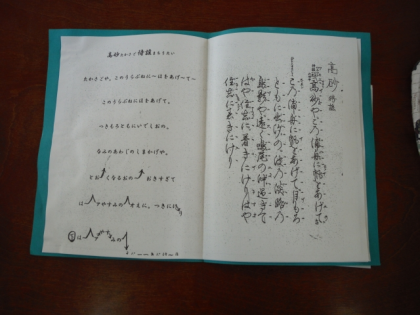 たかさごや、このうらぶねにーほをあげーてー
このうらぶねにほをあげて、
つきもろともにいでしおの、
なみのあわじのしまかげや、
とおくなるおの おきすぎて
はやすみのえに、つきにけり
高砂
高砂やこの浦舟に帆をあげて
この浦舟に帆をあげて月もろ
ともに出汐の波の淡路の
島影や遠く鳴尾の沖過ぎて
はや住吉に着きにけりはや
住吉に着きにけり